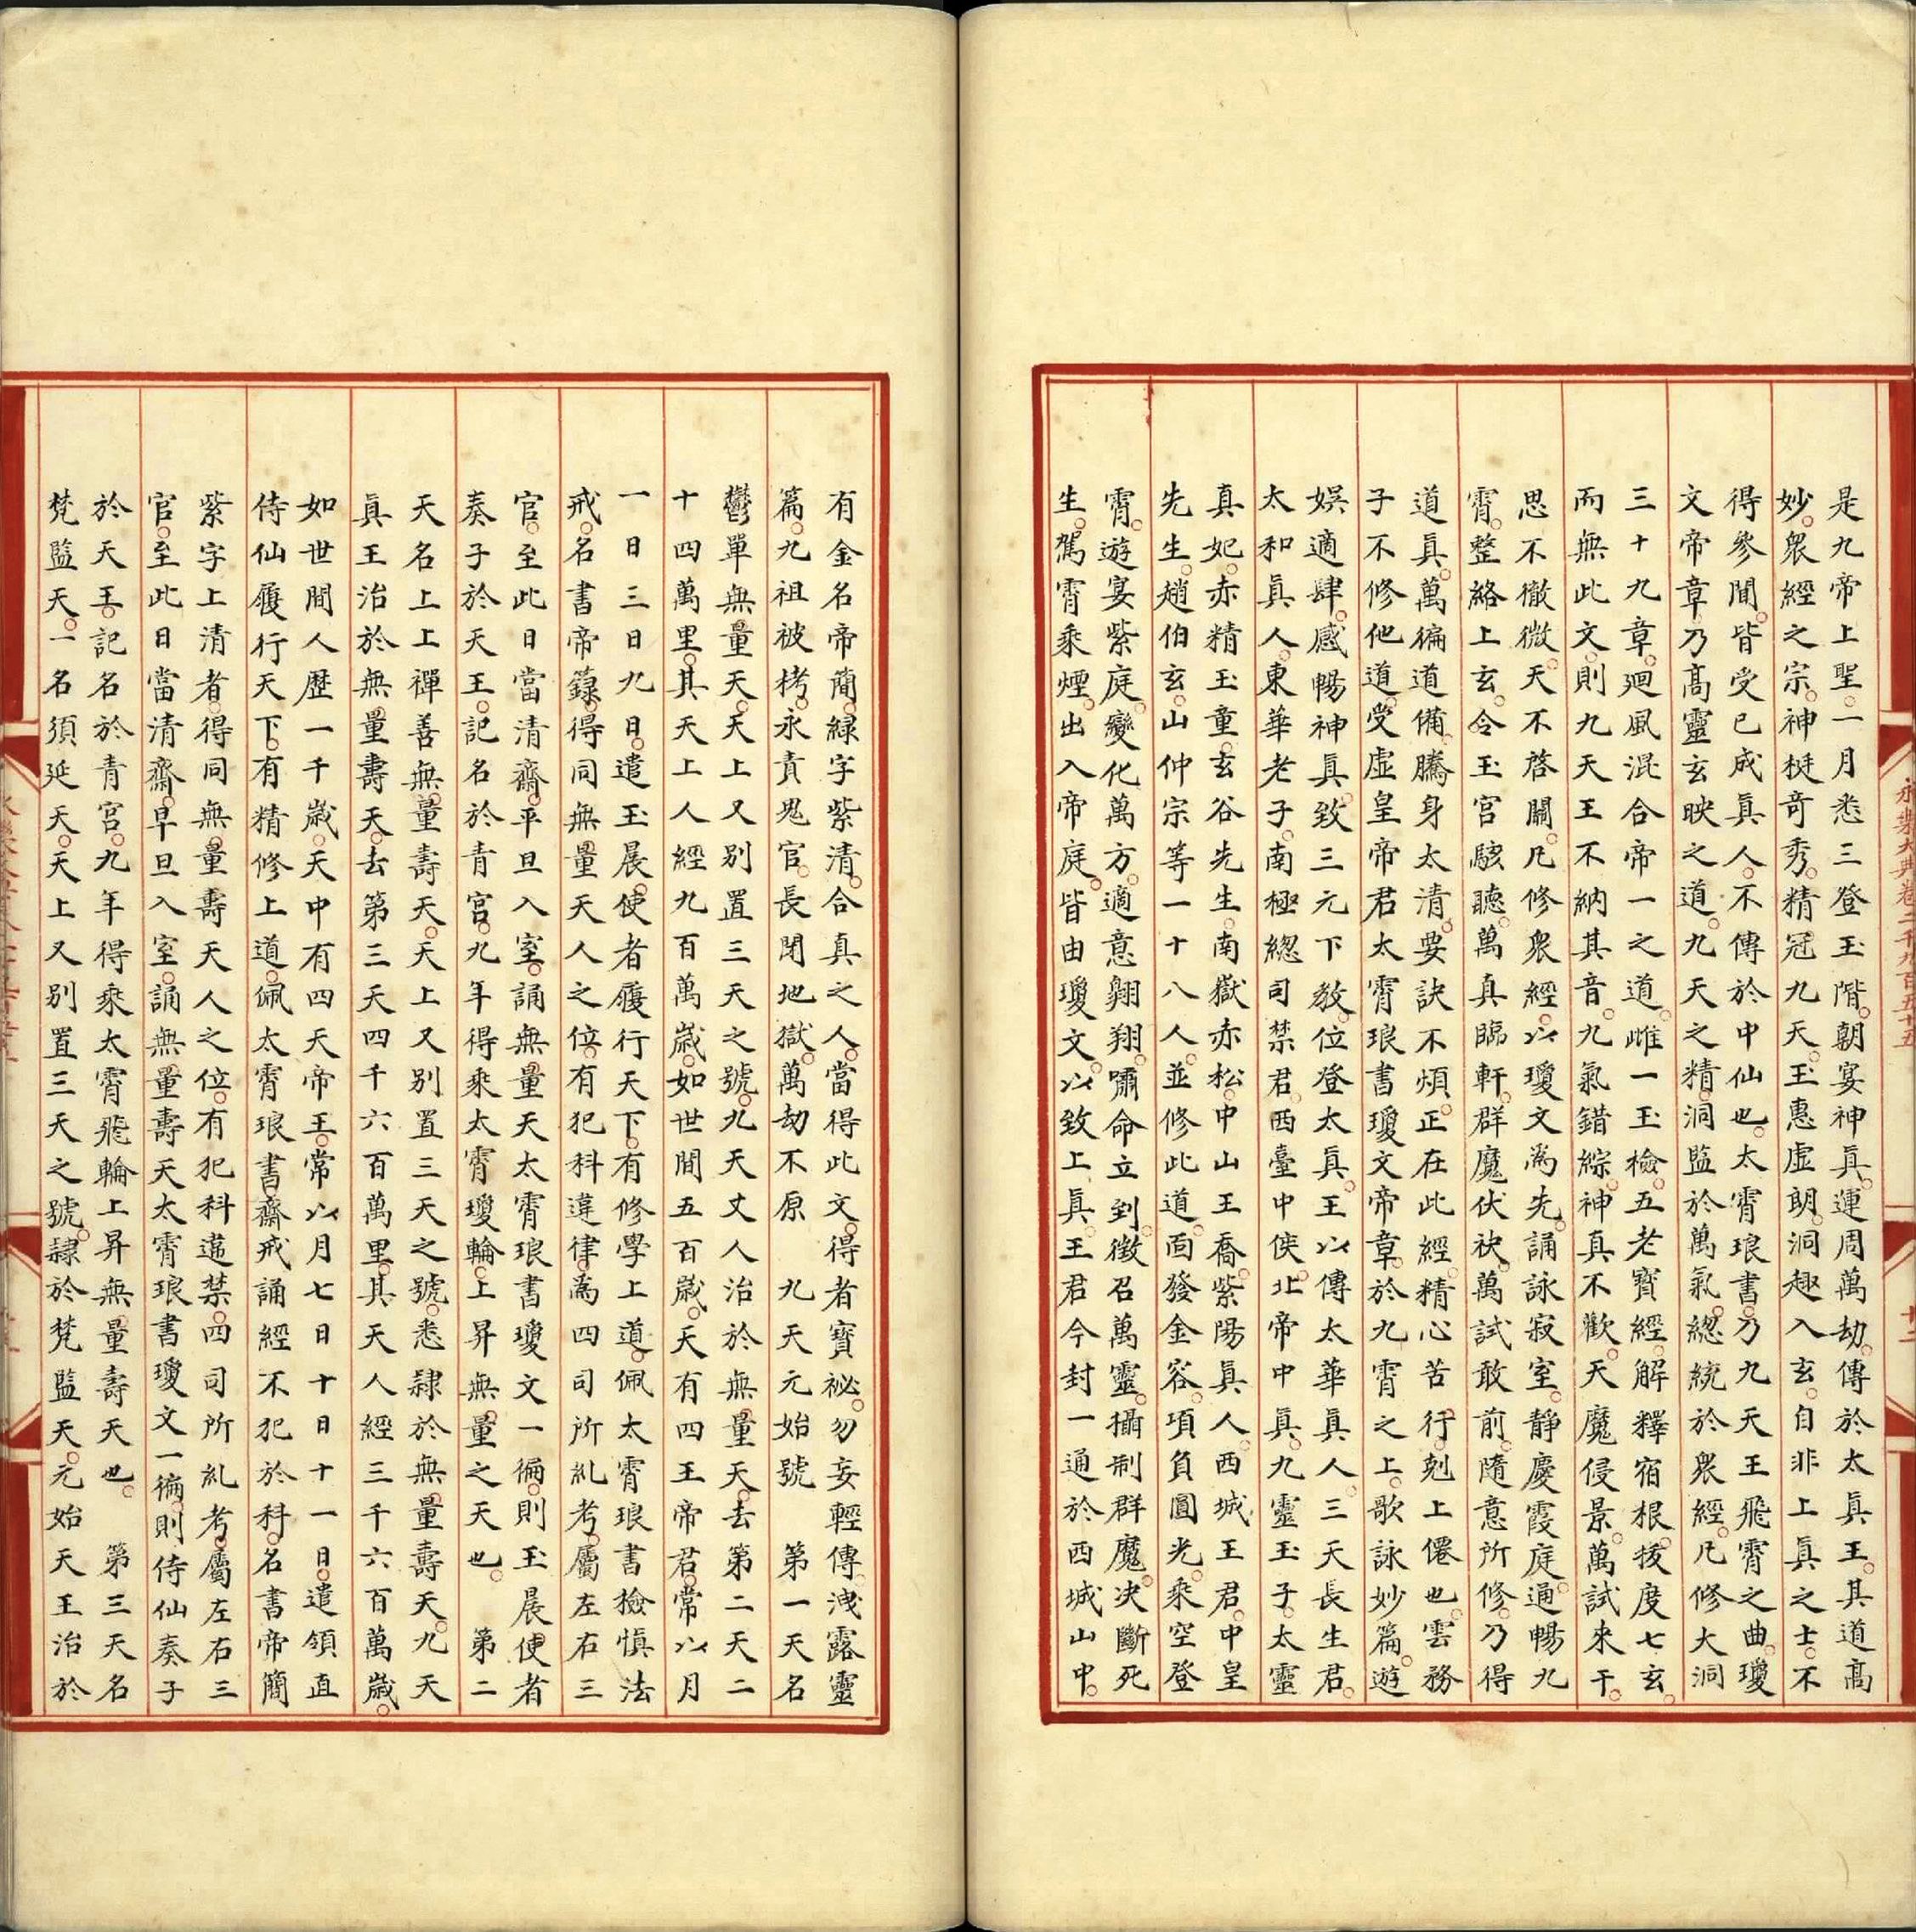 永樂大典卷二千九百五十五
十二
是九帝上聖。一月悉三登玉階。朝宴神真。運周萬劫。傳於太真王。其道高
妙。衆經之宗。神挺奇秀。精冠九天。玉惠虛朗。洞趣入玄。自非上真之士。不
得參聞。皆受已成真人。不傳於中仙也。太霄琅書。乃九天王飛霄之曲。瓊
文帝章。乃高靈玄映之道。九天之精。洞監於萬氣。緫統於衆經。凡修大洞
三十九章。廻風混合帝一之道。雌一玉檢。五老寳經。解釋宿根。拔度七玄。
而無此文。則九天王不納其音。九氣錯綜。神真不歡。天魔侵景。萬試來干。
思不徹微。天不啓關。凡修衆經。以瓊文為先。誦詠寂室。靜慶霞庭。通暢九
霄。整絡上玄。令玉宮駭聽。萬真臨軒。群魔伏袂。萬試敢前。隨意所修。乃得
道真。萬徧道備。騰身太清。要訣不煩。正在此經。精心苦行。剋上僊也。雲務
子不修他道。受虛皇帝君太霄琅書瓊文帝章。於九霄之上。歌詠妙篇。遊
娛適肆。感暢神真。致三元下教。位登太真。王以傳太華真人。三天長生君。
太和真人。東華老子。南極緦司禁君。西臺中侯。北帝中真。九靈玉子。太靈
真妃。赤精玉童。玄谷先生。南嶽赤松。中山王喬。紫陽真人。西城王君。中皇
先生。趙伯玄。山仲宗等一十八人。並修此道。面發金容。項負圓光。乘空登
霄。遊宴紫庭。變化萬方。適意翱翔。嘯命立到。徵召萬靈。攝制群魔。决斷死
生。駕霄乘煙。出入帝庭。皆由瓊文。以致上真。王君今封一通於西城山中。
有金名帝簡。緑字紫清。合真之人。當得此文。得者寳祕。勿妄輕傳。洩露靈
篇。九祖被栲。永責鬼官。長閉地獄。萬劫不原　九天元始號　第一天名
鬱單無量天。天上又别置三天之號。九天丈人治於無量天。去第二天二
十四萬里。其天上人經九百萬歲。如世間五百歲。天有四王帝君。常以月
一日三日九日。遣玉晨使者履行天下。有修學上道。佩太霄琅書檢慎法
戒。名書帝籙。得同無量天人之位。有犯科違律。為四司所糺考。屬左右三
官。至此日當清齋。平旦入室。誦無量天太霄琅書瓊文一徧。則玉晨使者
奏子於天王。記名於青宮。九年得乘太霄瓊輪。上昇無量之天也。　第二
天名上上禪善無量壽天。天上又别置三天之號。悉隷於無量壽天。九天
真王治於無量壽天。去第三天四千六百萬里。其天人經三千六百萬歲。
如世間人歷一千歲。天中有四天帝王。常以月七日十日十一日。遣領直
侍仙履行天下。有精修上道。佩太霄琅書齋戒誦經不犯於科。名書帝簡
紫字上清者。得同無量壽天人之位。有犯科違禁。四司所糺考。屬左右三
官。至此日當清齋。早旦入室。誦無量壽天太霄琅書瓊文一徧。則侍仙奏子
於天王。記名於青宮。九年得乘太霄飛輪上昇無量壽天也。　第三天名
梵監天。一名須延天。天上又别置三天之號。隷於梵監天。元始天王治於